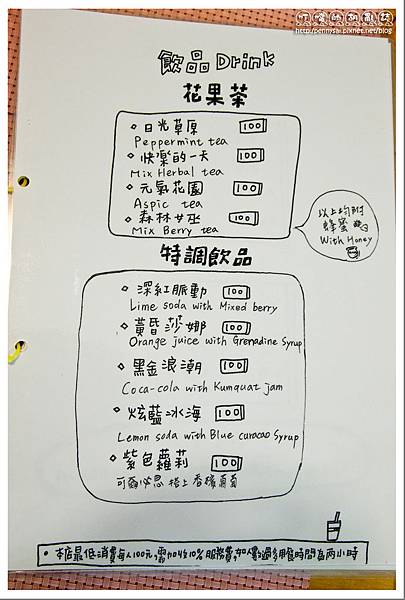 http://pennysai.pixnet.net/blog
飲品 Drink
花果茶
日光草原 100
Peppermint tea
快樂的一天 100
Mix Herbal tea
元氣花園 100
Aspic tea
森林女巫 100
Mix Berry tea
以上均附
蜂蜜
With Honey
特調飲品
深紅脈動 100
Lime soda with Mixed berry
黃昏莎娜 100
Orange juice with Grenadine Syrup
黑金浪潮 100
Coca-cola with Kumquat jam
炫藍冰海 100
Lemon soda with Blue curacao Syrup
紫色蘿莉 100
可爾必思 搭上香檳葡萄
本店最低消費每人100元,需加收10%服務費,如人潮過多用餐時間為兩小時